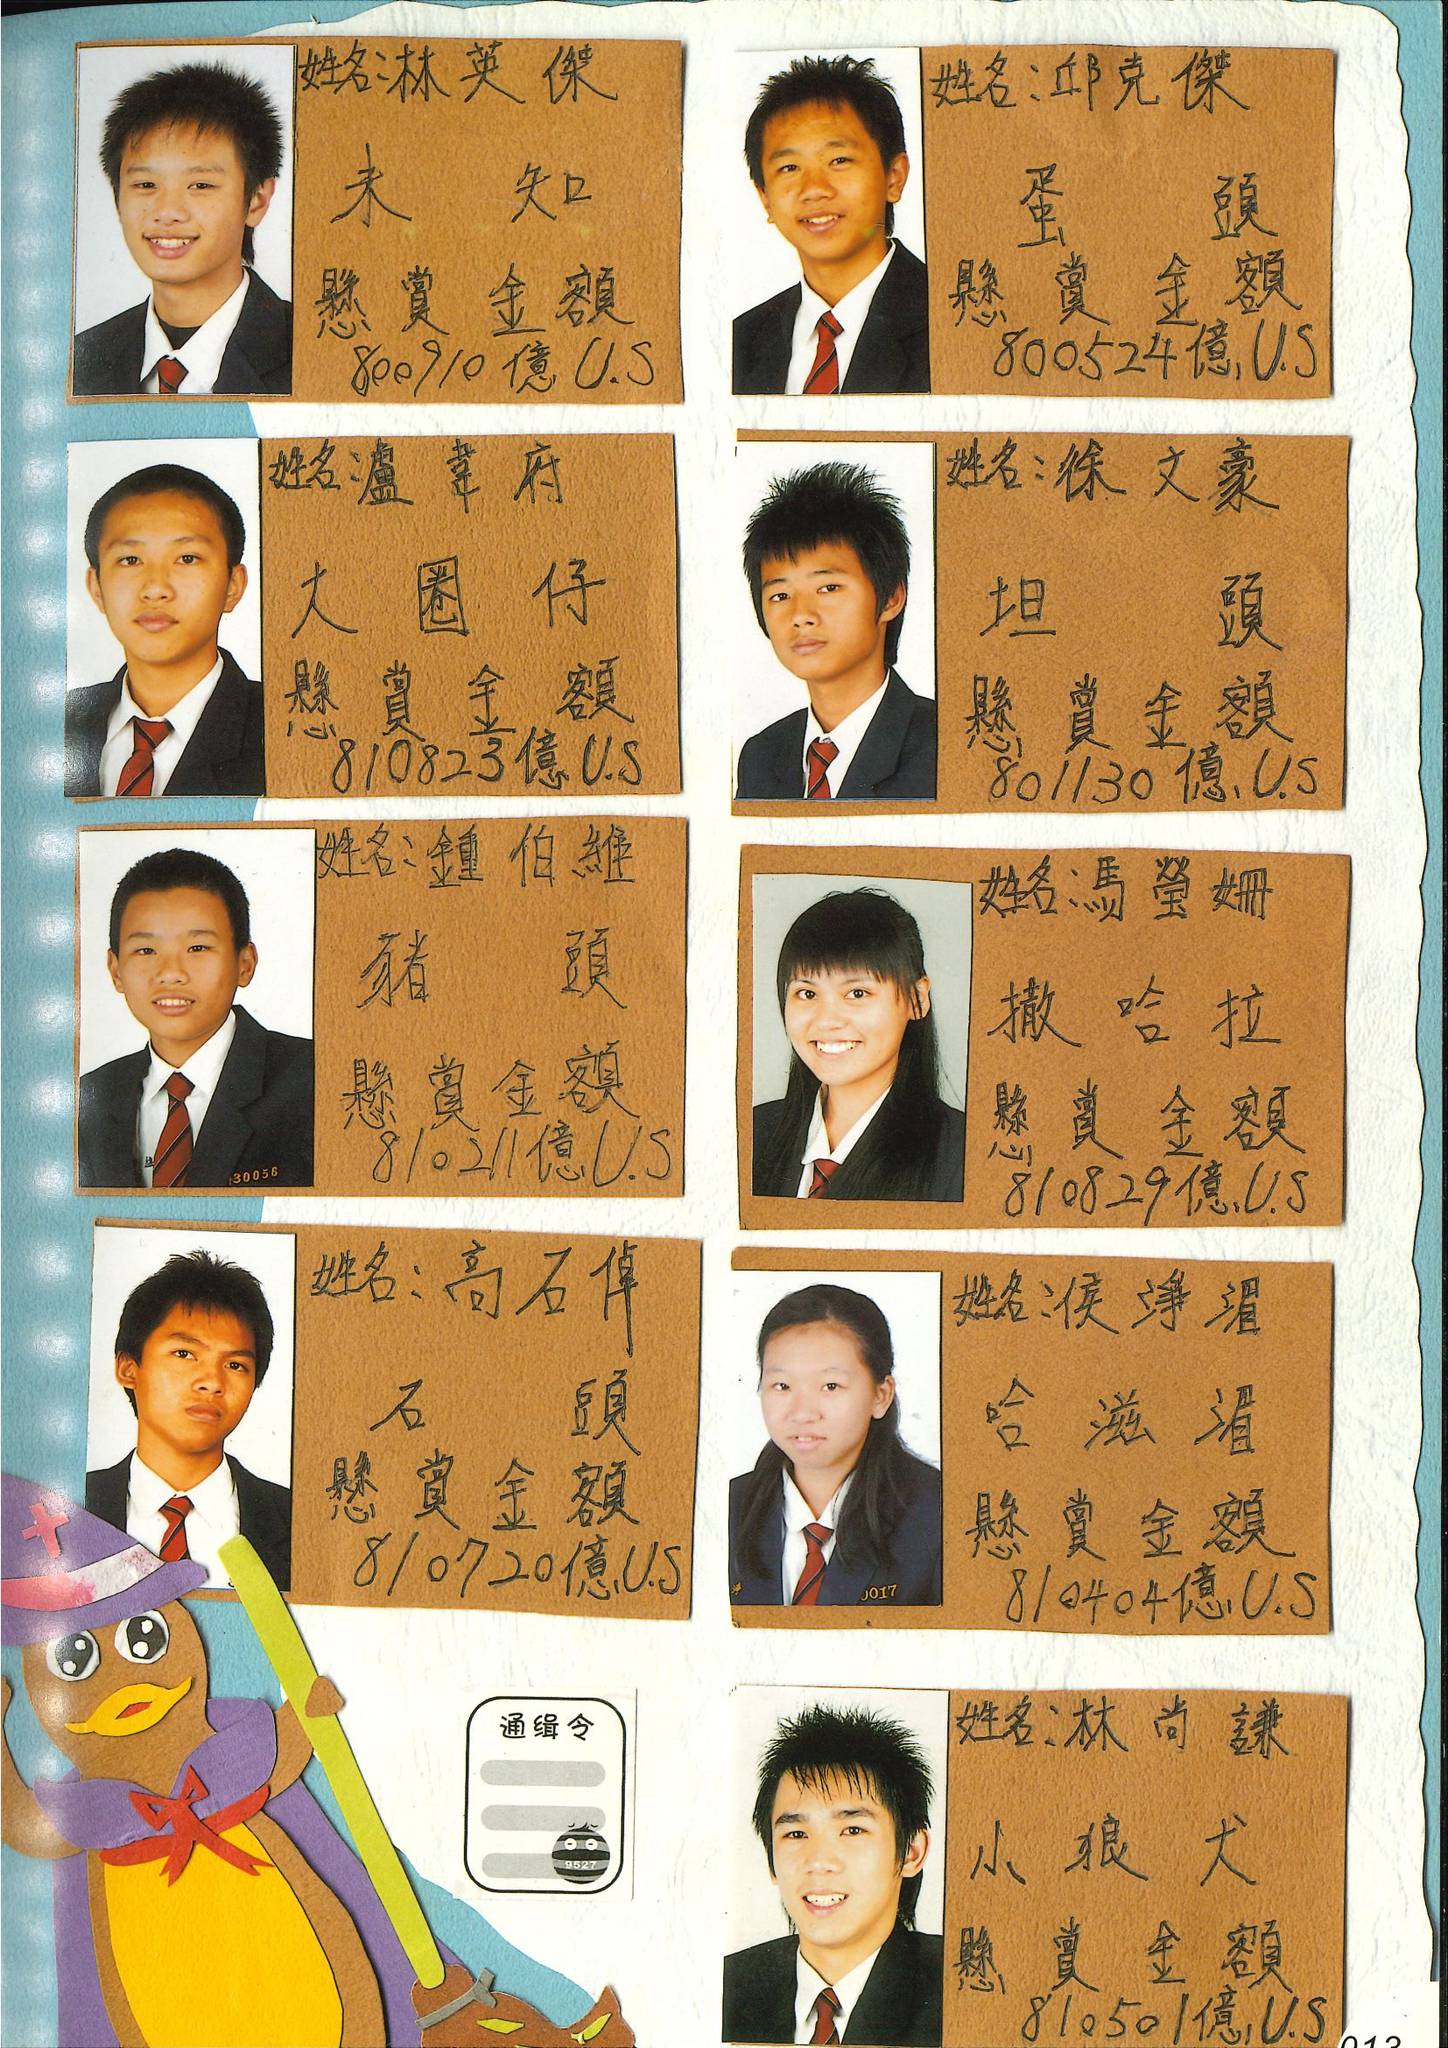 姓名:林英傑
未知
懸賞金額
800910億U.S
姓名:邱克傑
蛋頭
懸賞金額
800524億U.S
姓名:瀘韋府
大圈仔
懸賞金額
810823億U.S
姓名:徐文豪
坦頭
懸賞金額
801130億U.S
姓名:鍾伯維
豬頭
懸賞金額
810211億U.S
30056
姓名:馮瑩姍
撒哈拉
懸賞金額
810829億U.S
姓名:高石倬
石頭
懸賞金額
810720億U.S
姓名:侯淨湄
哈滋湄
懸賞金額
810404億U.S
0017
通缉令
9527
姓名:林尚謙
小狼犬
懸賞金額
810501億U.S
013